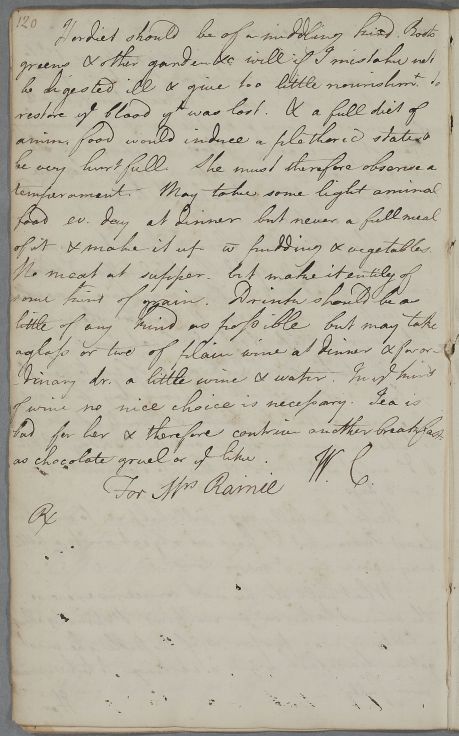 120
Her diet should be of a middling kind. Roots
greens & other garden &c will if I mistake not
be digested ill & give too little nourishmt. to
restore ye blood yt was lost. & a full diet of
anim. food would induce a plethoric state &
be very hurtfull. She must therefore observe a
temperament. May take some light animal
food ev. day at dinner but never a full meal
of it & make it up w pudding & vegetables.
No meat at supper. but make it entirely of
some kind of grain. Drinks should be as
little of any kind as possible but may take
a glass or two of plain wine at dinner & for or
dinary dr. a little wine & water. In ye kind
of wine no nice choice is necessary. Tea is
bad for her & therefore contrive another breakfast
as chocolate gruel or ye like. W. C.
For Mrs
℞